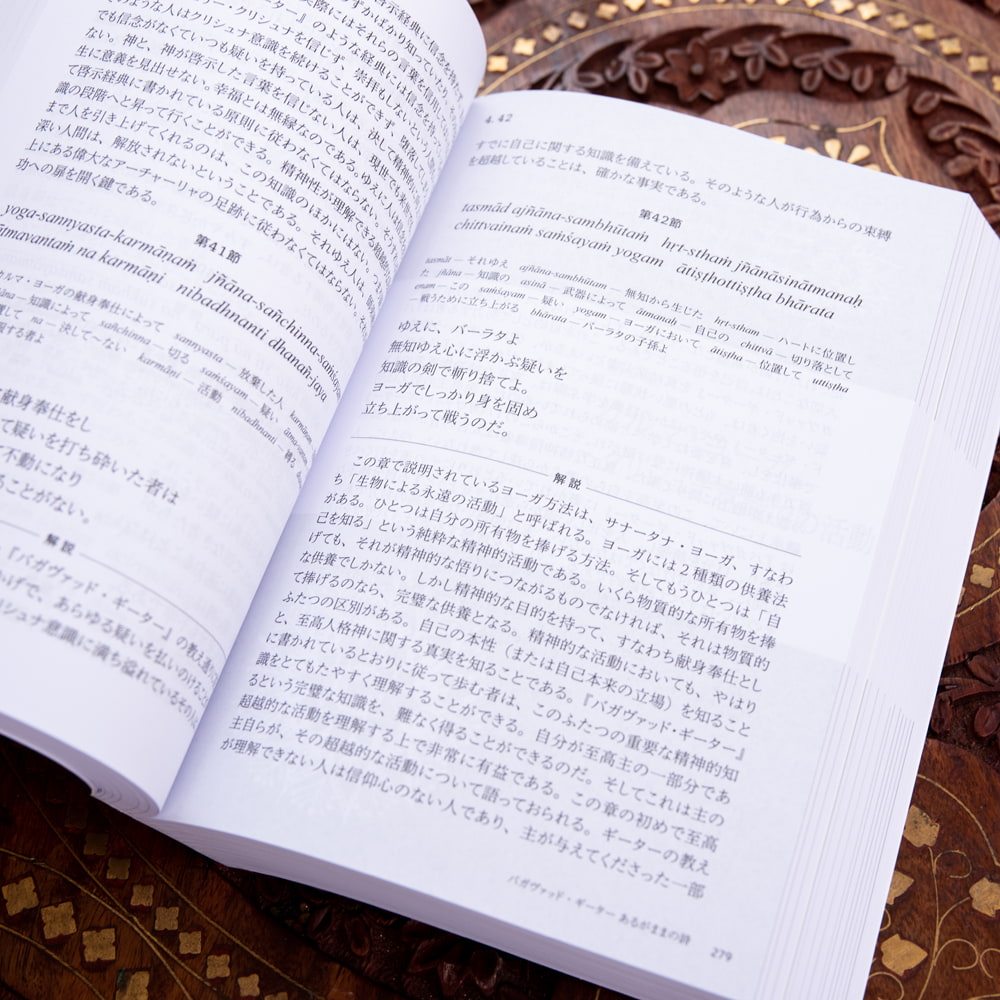 示経典に信念を持
ずかばかり知っていたり、
実際にはそれらの言葉を信用
ギーター』のような経典には信念を持
リー・クリシュナを信じず、崇拝もしないという
のような人はクリシュナ意識を続けることができず、堕落し
でも信念がなくていつも疑いを持っている人は、決して精神的
ない。神と、神が啓示した言葉を信じない人は、現世でも来世
生に意義を見出せない。幸福とは無縁なのである。ゆえに人は信念
て啓示経典に書かれている原則に従わなくてはならない。そう
識の段階へと昇って行くことができる。精神性が理解できる超越的
まで人を引き上げてくれるのは、この知識のほかにはない。つ
深い人間は、解放されないということである。それゆえ人は、師
上にある偉大なアーチャーリャの足跡に従わなくてはならない。
功への扉を開く鍵である。
第41節
yoga-sannyasta-karmāṇaṁ jñāna-sañchinna-saṁśaya
ātmavantaṁ na karmāṇi nibadhnanti dhanañ-jaya
カルマ・ヨーガの献身奉仕によって sannyasta — 放棄した人 karmāṇam
āna — 知識によって sañchinna — 切る saṁśayam — 疑い ātma-vantam
置して na — 決して〜ない karmāṇi — 活動 nibadhnanti — 縛る
服する者よ
献身奉仕をし
て疑いを打ち砕いた者は
て不動になり
ることがない。
解説
『バガヴァッド・ギーター』の教え
かげで、あらゆる疑いを払いのけること
リシュナ意識に満ち溢れているその
4. 42
すでに自己に関する知識を備えている。そのような人が行為からの束縛
を超越していることは、確かな事実である。
第42節
tasmād ajñāna-sambhūtaṁ hṛt-sthaṁ jñānāsinātmanaḥ
chittvainaṁ saṁśayaṁ yogam ātiṣṭhottiṣṭha bhārata
tasmāt — それゆえ ajñāna-sambhūtam — 無知から生じた hṛt-stham — ハートに位置し
た jñāna — 知識の asinā — 武器によって ātmanaḥ — 自己の chittvā — 切り落として
enam — この saṁśayam — 疑い yogam — ヨーガにおいて ātiṣṭha — 位置して uttiṣṭha
— 戦うために立ち上がる bhārata — バーラタの子孫よ
ゆえに、バーラタよ
無知ゆえ心に浮かぶ疑いを
知識の剣で斬り捨てよ。
ヨーガでしっかり身を固め
立ち上がって戦うのだ。
解説
この章で説明されているヨーガ方法は、サナータナ・ヨーガ、すなわ
ち「生物による永遠の活動」と呼ばれる。ヨーガには2種類の供養法
がある。ひとつは自分の所有物を捧げる方法。そしてもうひとつは「自
己を知る」という純粋な精神的活動である。いくら物質的な所有物を捧
げても、それが精神的な悟りにつながるものでなければ、それは物質的
な供養でしかない。しかし精神的な目的を持って、すなわち献身奉仕とし
て捧げるのなら、完璧な供養となる。精神的な活動においても、やはり
ふたつの区別がある。自己の本性（または自己本来の立場）を知ること
と、至高人格神に関する真実を知ることである。『バガヴァッド・ギーター』
に書かれているとおりに従って歩む者は、このふたつの重要な精神的知
識をとてもたやすく理解することができる。自分が至高主の一部分であ
るという完璧な知識を、難なく得ることができるのだ。そしてこれは主の
超越的な活動を理解する上で非常に有益である。この章の初めで至高
主自らが、その超越的な活動について語っておられる。ギーターの教え
が理解できない人は信仰心のない人であり、主が与えてくださった一部
バガヴァッド・ギーター あるがままの詩 279